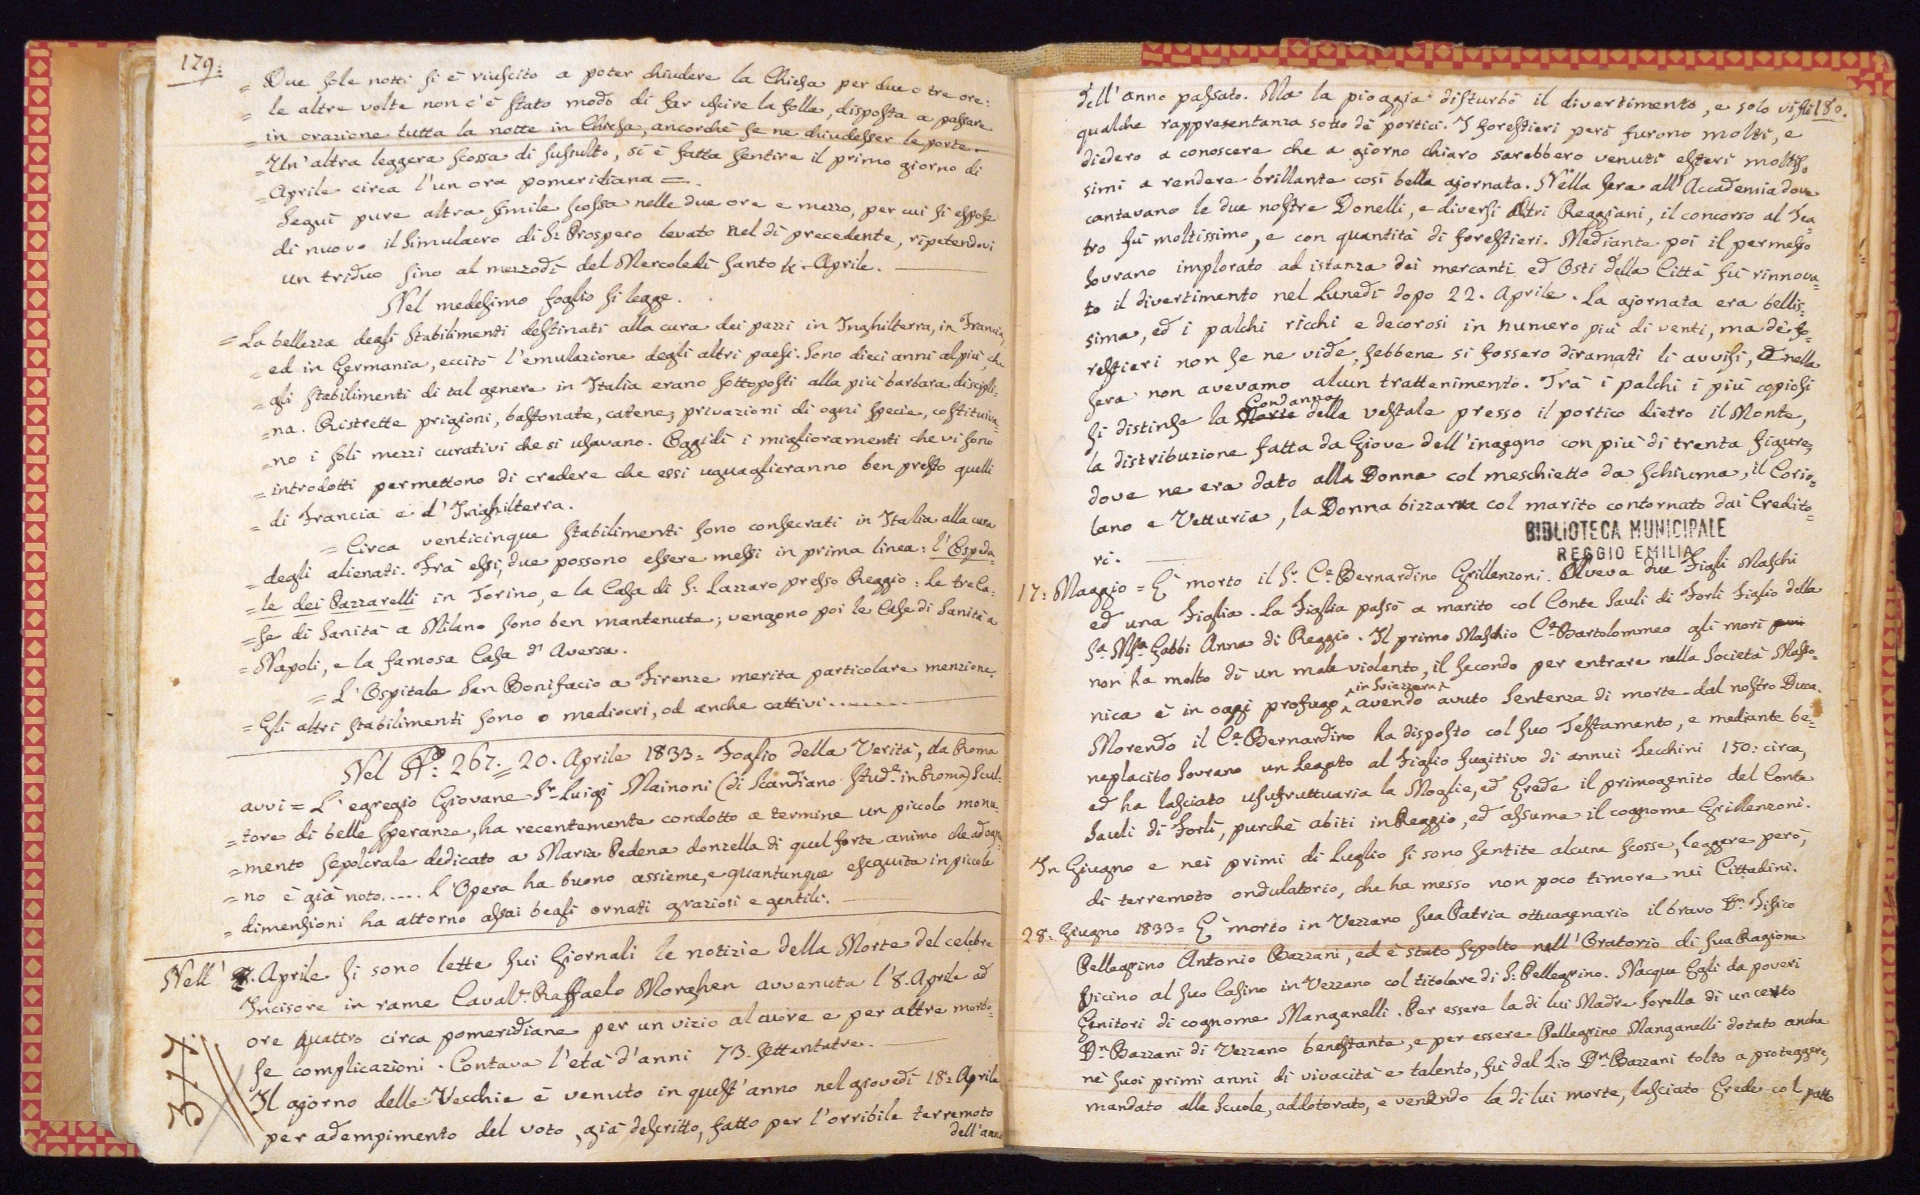 179:
= Due sole notti si è riuscito a poter chiudere la Chiesa per due o tre ore:
= le altre volte non c'è stato modo di far uscire la folla, disposta a passare
= in orazione tutta la notte in Chiesa, ancorchè se ne chiudesser le porte =
= Un' altra leggera scossa di sussulto, si è fatta sentire il primo giorno di
= Aprile circa l'un ora pomeridiana =.
Seguì pure altra simile scossa nelle due ore e mezzo, per cui si espose
di nuovo il Simulacro di S: Prospero levato nel dì precedente, ripetendovi
un triduo sino al mezzodì del Mercoledì Santo Aprile.
Nel medesimo foglio si legge.
= La bellezza degli Stabilimenti destinati alla cura dei pazzi in Inghilterra, in Francia,
= ed in Germania, eccitò l'emulazione degli altri paesi. Sono dieci anni al più, che
= gli stabilimenti di tal genere in Italia erano sottoposti alla più barbara discipli=
= na. Ristrette prigioni, bastonate, catene, privazioni di ogni specie, costituiva=
= no i soli mezzi curativi che si usavano. Oggidì i miglioramenti che vi sono
= introdotti permettono di credere che essi uguaglieranno ben presto quelli
= di Francia e d'Inghilterra.
= Circa venticinque stabilimenti sono consecrati in Italia alla cura
= degli alienati. Frà essi, due possono essere messi in prima linea: l'Ospeda=
= le dei Pazzarelli in Torino, e la Casa di S: Lazzaro presso Reggio: Le tre Ca=
= se di Sanità a Milano sono ben mantenute; vengono poi le Case di Sanità a
= Napoli, e la famosa Casa d'Aversa.
= L'Ospitale San Bonifacio a Firenze merita particolare menzione.
= Gli altri stabilimenti sono o mediocri, od anche cattivi.........
Nel N°: 267. = 20. Aprile 1833 = Foglio della Verità, da Roma
avvi = L'egregio Giovane Sr. Luigi Mainoni (di Scandiano Stude. in Roma) Scul=
= tore di belle speranze, ha recentemente condotto a termine un piccolo monu=
= mento sepolcrale dedicato a Maria Pedena donzella di quel forte animo che ad ogn=
= no è già noto..... L'Opera ha buono assieme, e quantunque eseguita in piccole
= dimensioni ha attorno assai beasi ornati graziosi e gentili.
Nell' Aprile si sono lette sui Giornali le notizie della Morte del celebre
Incisore in rame Cavalr. Raffaelo Morghen avvenuta l'8. Aprile ad
ore quattro circa pomeridiane per un vizio al cuore e per altre morbo=
se complicazioni. Contava l'età d'anni 73. settantatre.
Il giorno delle Vecchie è venuto in quest'anno nel giovedì 18: Aprile
per adempimento del voto, già descritto, fatto per l'orribile terremoto
dell'anno
317
180.
dell'anno passato. Ma la pioggia disturbò il divertimento, e solo vi fu
qualche rappresentanza sotto de' portici. I forestieri però furono molti, e
diedero a conoscere che a giorno chiaro sarebbero venuti esteri moltis=
simi a rendere brillante così bella giornata. Nella sera all'Accademia dove
cantavano le due nostre Donelli, e diversi altri Reggiani, il concorso al Tea=
tro fù moltissimo, e con quantità di forestieri. Mediante poi il permesso
Sovrano implorato ad istanza dei mercanti ed Osti della Città fù rinnova=
to il divertimento nel Lunedì dopo 22. Aprile. La giornata era bellis=
sima, ed i palchi ricchi e decorosi in numero più di venti, ma de' fo=
restieri non se ne vide, sebbene si fossero diramati li avvisi, e nella
sera non avevamo alcun trattenimento. Trà i palchi i più copiosi
Condanna
si distinse la Morte della vestale presso il portico dietro il Monte,
la distribuzione fatta da Giove dell'ingegno con più di trenta figure,
dove ne era dato alla Donna col meschietto da schiuma, il Corio=
lano e Vetturia, la Donna bizzarra col marito contornato dai Credito=
ri.
BIBLIOTECA MUNICIPALE
REGGIO EMILIA
17: Maggio = È morto il Sr. Ce. Bernardino Grillenzoni. Aveva due Figli Maschi
ed una Figlia. La Figlia passò a marito col Conte Sauli di Forlì Figlio della
Sa. Msa. Gabbi Anna di Reggio. Il primo Maschio Ce. Bartolommeo gli morì
non ha molto di un male violento, il secondo per entrare nella Società Masso=
in Svizzera
nica è in oggi profugo avendo avuto Sentenza di morte dal nostro Duca.
Morendo il Ce. Bernardino ha disposto col suo Testamento, e mediante be=
neplacito Sovrano un Legato al Figlio fugitivo di annui Zecchini 150: circa,
ed ha lasciato usufruttuaria la Moglie, ed Erede il primogenito del Conte
Sauli di Forlì, purchè abiti in Reggio, ed assuma il cognome Grillenzoni.
In Giugno e nei primi di Luglio si sono sentite alcune scosse, leggere però,
di terremoto ondulatorio, che ha messo non poco timore nei Cittadini.
28: Giugno 1833 = È morto in Vezzano sua Patria ottuagenario il bravo Dr. Fisico
Pellegrino Antonio Bazzani, ed è stato sepolto nell'Oratorio di sua Ragione
vicino al suo Casino in Vezzano col titolare di S: Pellegrino. Nacque Egli da poveri
Genitori di cognome Manganelli. Per essere la di lui Madre Sorella di un certo
Dn. Bazzani di Vezzano benestante, e per essere Pellegrino Manganelli dotato anche
ne' suoi primi anni di vivacità e talento, fù dal Zio Dn. Bazzani tolto a proteggere,
mandato alle Scuole, addotorato, e venendo la di lui morte, lasciato Erede col patto